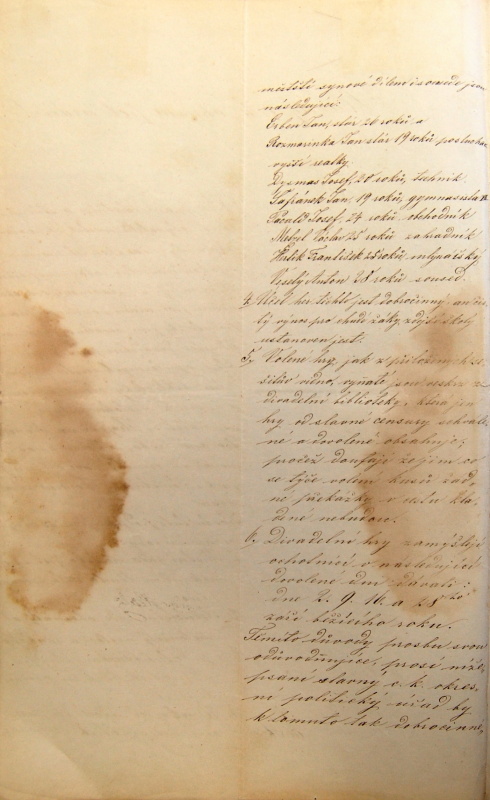 městští synové dílem i sousedé jsou
následující:
Erben Jan, stár 20 roků a
Rozmarinka Jan stár 19 roků posluchač
vyšší realky.
Dyzmas Josef, 20 roků, technik
Šafránek Jan, 19 roků, gymnasista
Josef, 24 roků obchodník
Václav 25 roků zahradník
Hulek František 25 roků, mlynářský
Veselý Anton 28 roků soused.
4, Účel her těchto jest dobročinný, an čis-
tý výnos pro chudé žáky zdejší školy
ustanoven jest.
5, Volené hry, jak z přiložení k se-
šitův vidno, vyňaté jsou veskrz z
divadelní bibliotéky, která jen
hry od slavné censury schvále-
né a dovolené obsahuje;
pročež doufají že jim co
se týče volení kusů žád-
né překážky v cestu kla-
dené nebudou.
6, Divadelní hry zamýšlejí
ochotníci v následující
dovolené dni dávati:
dne 2. 9. 16. a 28ho
září běžícího roku.
Těmito důvody prosbu svou
odůvodňujíce, prosí níže
psaní slavný c. k. okres-
ní politický úřad by
k tomuto tak dobročinné,